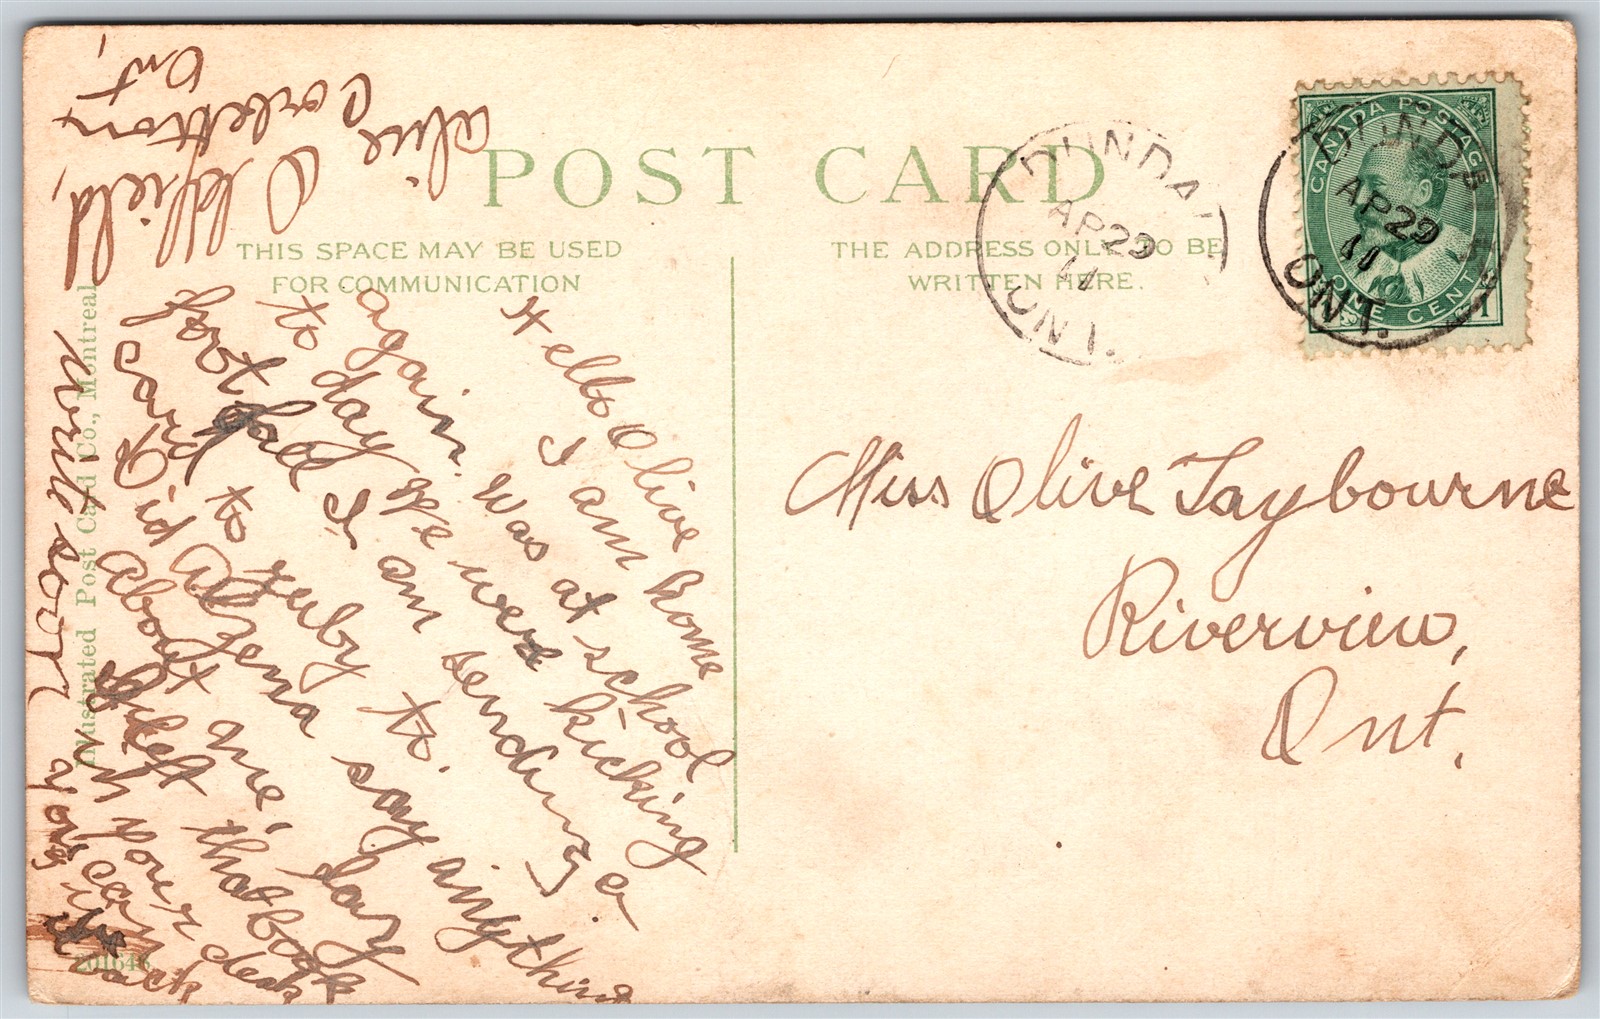 POST CARD
THIS SPACE MAY BE USED
FOR COMMUNICATION
THE ADDRESS ONLY TO BE
WRITTEN HERE.
DUNDAS
AP 29
11
ONT.
DUNDAS
AP 29
11
ONT.
CANADA POSTAGE
ONE CENT
1
Miss Olive Taybourne
Riverview,
Ont.
Hello Olive
I am home
again. Was at school
to day we were kicking
foot ball I am sending a
card to ruby to.
Did Alzena say anything
about me, day
I left that book
in your desk
write soon
your card
back
Olive Oldfield,
Corbetton,
Ont,
Illustrated Post Card Co., Montreal
201646